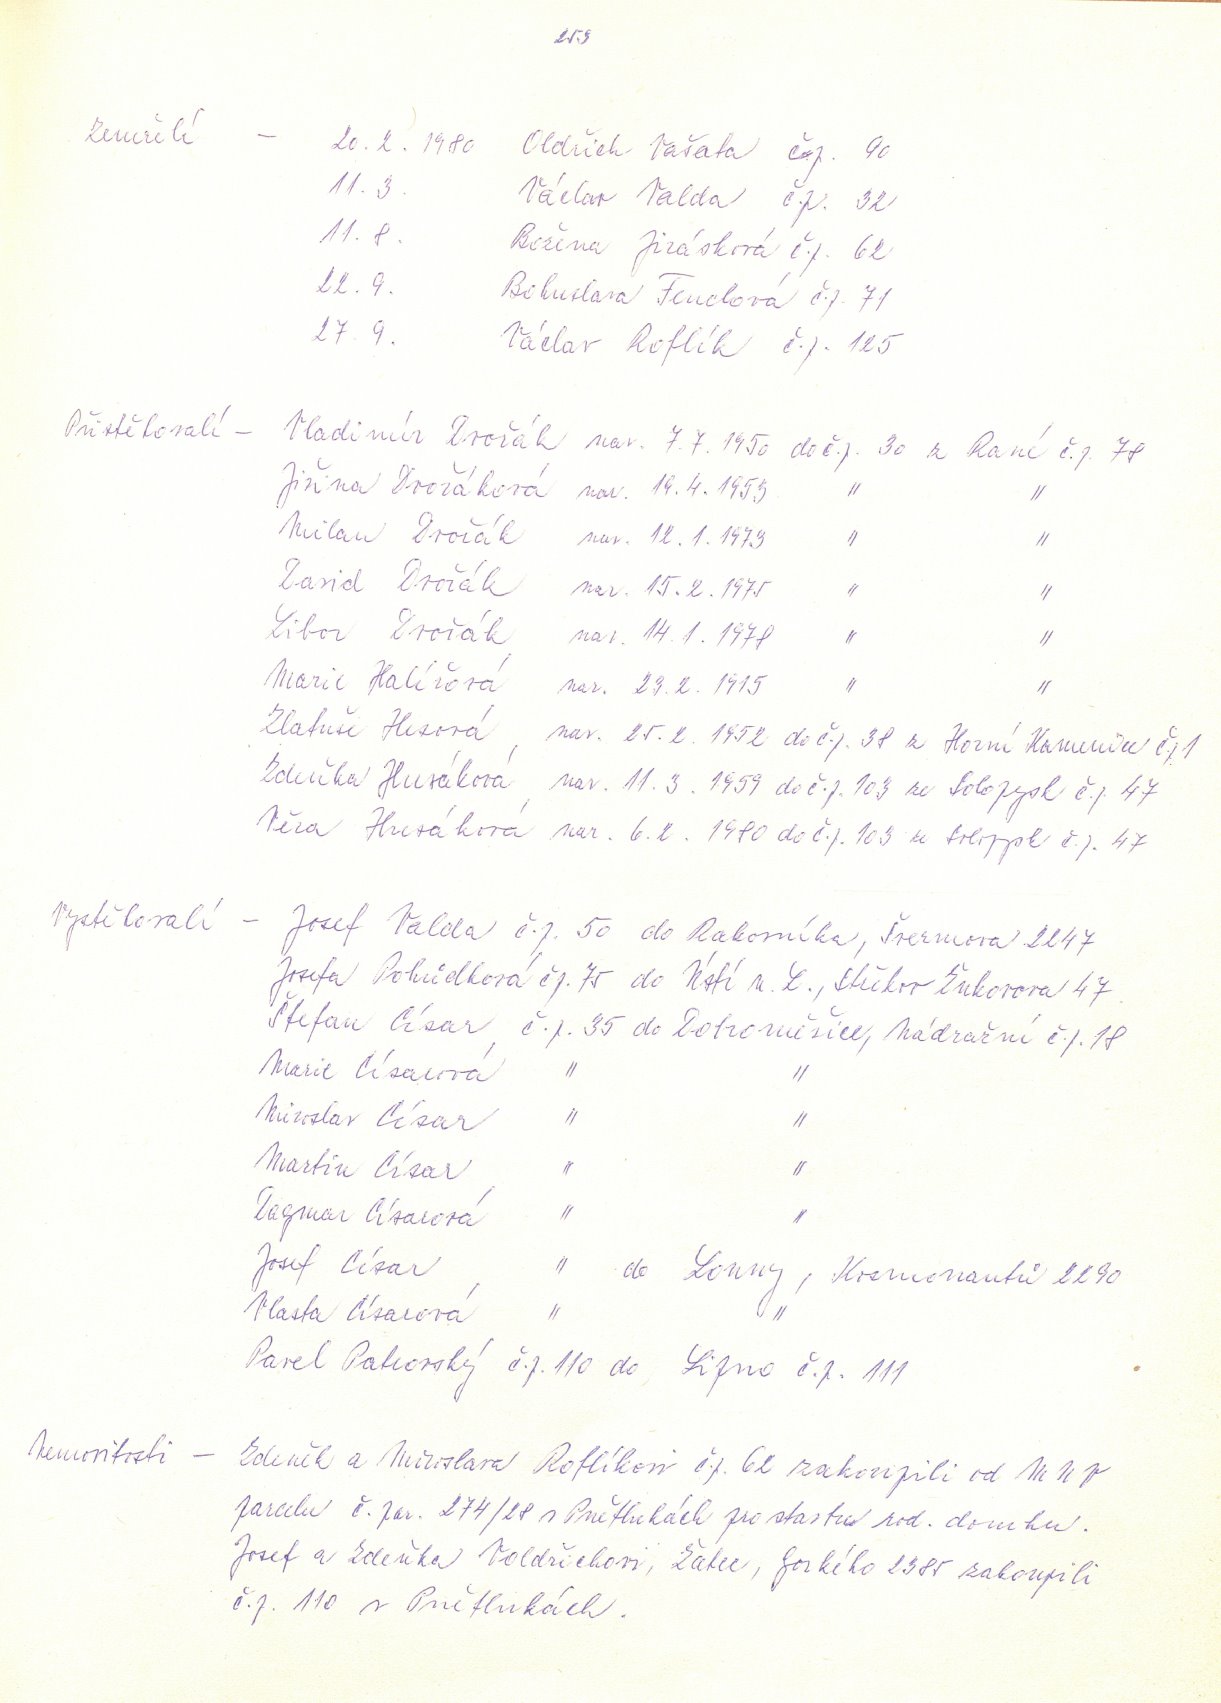 253
Zemřelí - 20. 2. 1980 Oldřich Vašata čp. 90
11. 3. Václav Valda č.p. 32
11. 8. Božena Jirásková č.p. 62
22. 9. Bohuslava Fenclová č.p. 71
27. 9. Václav Roflík č.p. 125
Přistěhovalí - Vladimír Dvořák nar. 7. 7. 1950 do č.p. 30 z Rané č.p. 78
Jiřina Dvořáková nar. 19. 4. 1953 " "
Milan Dvořák nar. 12. 1. 1973 " "
David Dvořák nar. 15. 2. 1975 " "
Libor Dvořák nar. 14. 1. 1978 " "
Marie Halířová nar. 23. 2. 1915 " "
Zlatuše Hesová nar. 25. 2. 1952 do č.p. 38 z Horní Kamenice č.p. 1
Zdeňka Husáková nar. 11. 3. 1959 do č.p. 103 ze Solopysk č.p. 47
Věra Husáková nar. 6. 2. 1980 do č.p. 103 ze Solopysk č.p. 47
Vystěhovalí - Josef Valda č.p. 50 do Rakovníka, Švermova 2247
Josefa Pohůdková č.p. 75 do Ústí n. L., Střekov Žukovova 47
Štefan Císar č.p. 35 do Dobroměřice, Nádražní č.p. 18
Marie Císarová " "
Miroslav Císar " "
Martin Císar " "
Dagmar Císarová " "
Josef Císar " do Louny, Kosmonautů 2290
Vlasta Císarová " "
Pavel Patrovský č.p. 110 do Lipno č.p. 111
Nemovitosti - Zdeněk a Miroslava Roflíkovi č.p. 62 zakoupili od MNV
parcelu č. par. 274/28 v Pnětlukách pro stavbu rod. domku.
Josef a Zdeňka Voldřichovi, Žatec, Gorkého 2385 zakoupili
č.p. 110 v Pnětlukách.